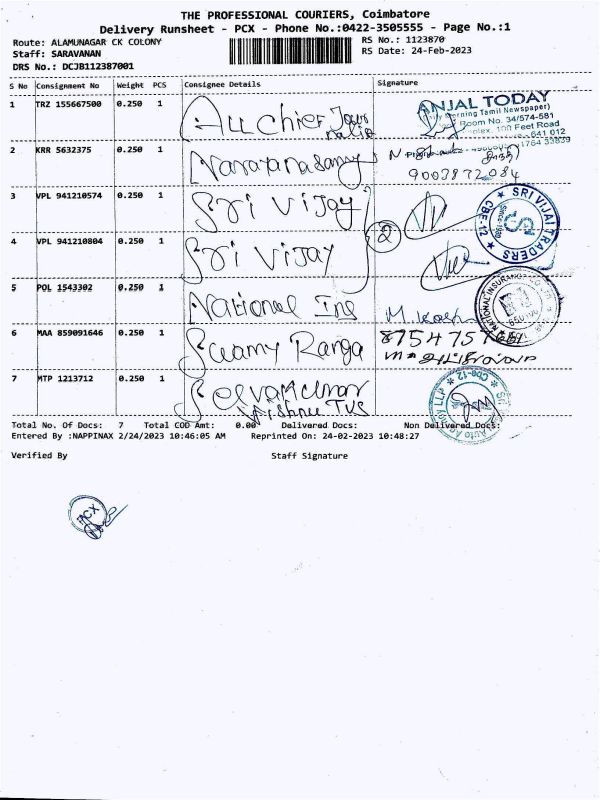 THE PROFESSIONAL COURIERS, Coimbatore
Delivery Runsheet - PCX - Phone No.:0422-3505555 - Page No.:1
Route: ALAMUNAGAR CK COLONY
RS No.: 1123870
Staff: SARAVANAN
RS Date: 24-Feb-2023
DRS No.: DCJB112387001
S No Consignment No Weight PCS Consignee Details Signature
1 TRZ 155667500 0.250 1 All chief Jour
nalis
ANJAL TODAY
Morning Tamil Newspaper)
Room No. 34/574-581
Complex, 100 Feet Road
641 012
2 KRR 5632375 0.250 1 Narayanasamy
9003872084
3 VPL 941210574 0.250 1 Sri Vijay
SRI VIJAI TRADERS
CBE-12
Since 1990
2
4 VPL 941210804 0.250 1 Sri Vijay
5 POL 1543302 0.250 1 National Ins
NATIONAL INSURANCE
6 MAA 859091646 0.250 1 Swamy Ranga
7 MTP 1213712 0.250 1 Selvakumar
Krishna TVS
Cbe-12
Auto Agency LLP
Total No. Of Docs: 7 Total COD Amt: 0.00 Delivered Docs: Non Delivered Docs:
Entered By :NAPPINAX 2/24/2023 10:46:05 AM Reprinted On: 24-02-2023 10:48:27
Verified By Staff Signature
PCX